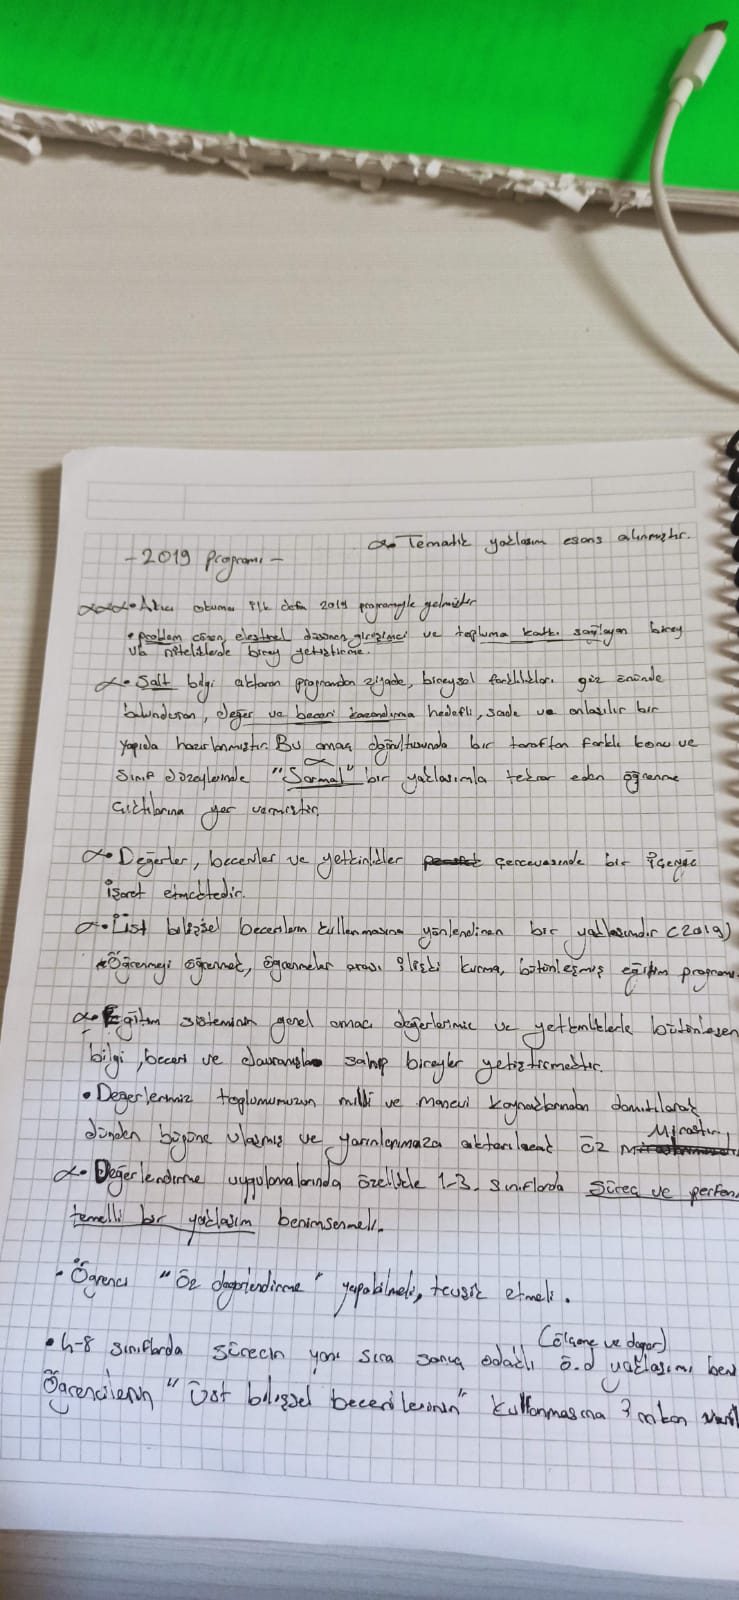 Tematik yaklaşım esas alınmıştır.
-2019 Programı-
Akıcı okuma ilk defa 2019 programıyla gelmiştir
• problem çözen, eleştirel düşünen girişimci ve topluma katkı sağlayan birey
vb niteliklerde birey yetiştirme.
• Salt bilgi aktaran programdan ziyade, bireysel farklılıkları göz önünde
bulunduran, değer ve beceri kazandırma hedefli, sade ve anlaşılır bir
yapıda hazırlanmıştır. Bu amaç doğrultusunda bir taraftan farklı konu ve
sınıf düzeylerinde "Sarmal" bir yaklaşımla tekrar eden öğrenme
çıktılarına yer vermiştir.
• Değerler, beceriler ve yetkinlikler çerçevesinde bir içeriğe
işaret etmektedir.
• Üst bilişsel becerilerin kullanmasına yönlendiren bir yaklaşımdır (2019)
Öğrenmeyi öğrenmek, öğrenmeler arası ilişki kurma, bütünleşmiş eğitim programı
• Eğitim sisteminin genel amacı değerlerimiz ve yetkinliklerle bütünleşen
bilgi, beceri ve davranışlara sahip bireyler yetiştirmektir.
• Değerlerimiz toplumumuzun milli ve manevi kaynaklarından damıtılarak
dünden bugüne ulaşmış ve yarınlarımıza aktarılacak öz Mirastır,
• Değerlendirme uygulamalarında özellikle 1-3. sınıflarda süreç ve perfor
temelli bir yaklaşım benimsenmeli.
• Öğrenci "Öz değerlendirme" yapabilmeli, teşvik etmeli.
(ölçme ve değer)
• 4-8 sınıflarda sürecin yanı sıra sonuç odaklı ö.d yaklaşımı ben
Öğrencilerin "Üst bilişsel becerilerinin" kullanmasına imkan